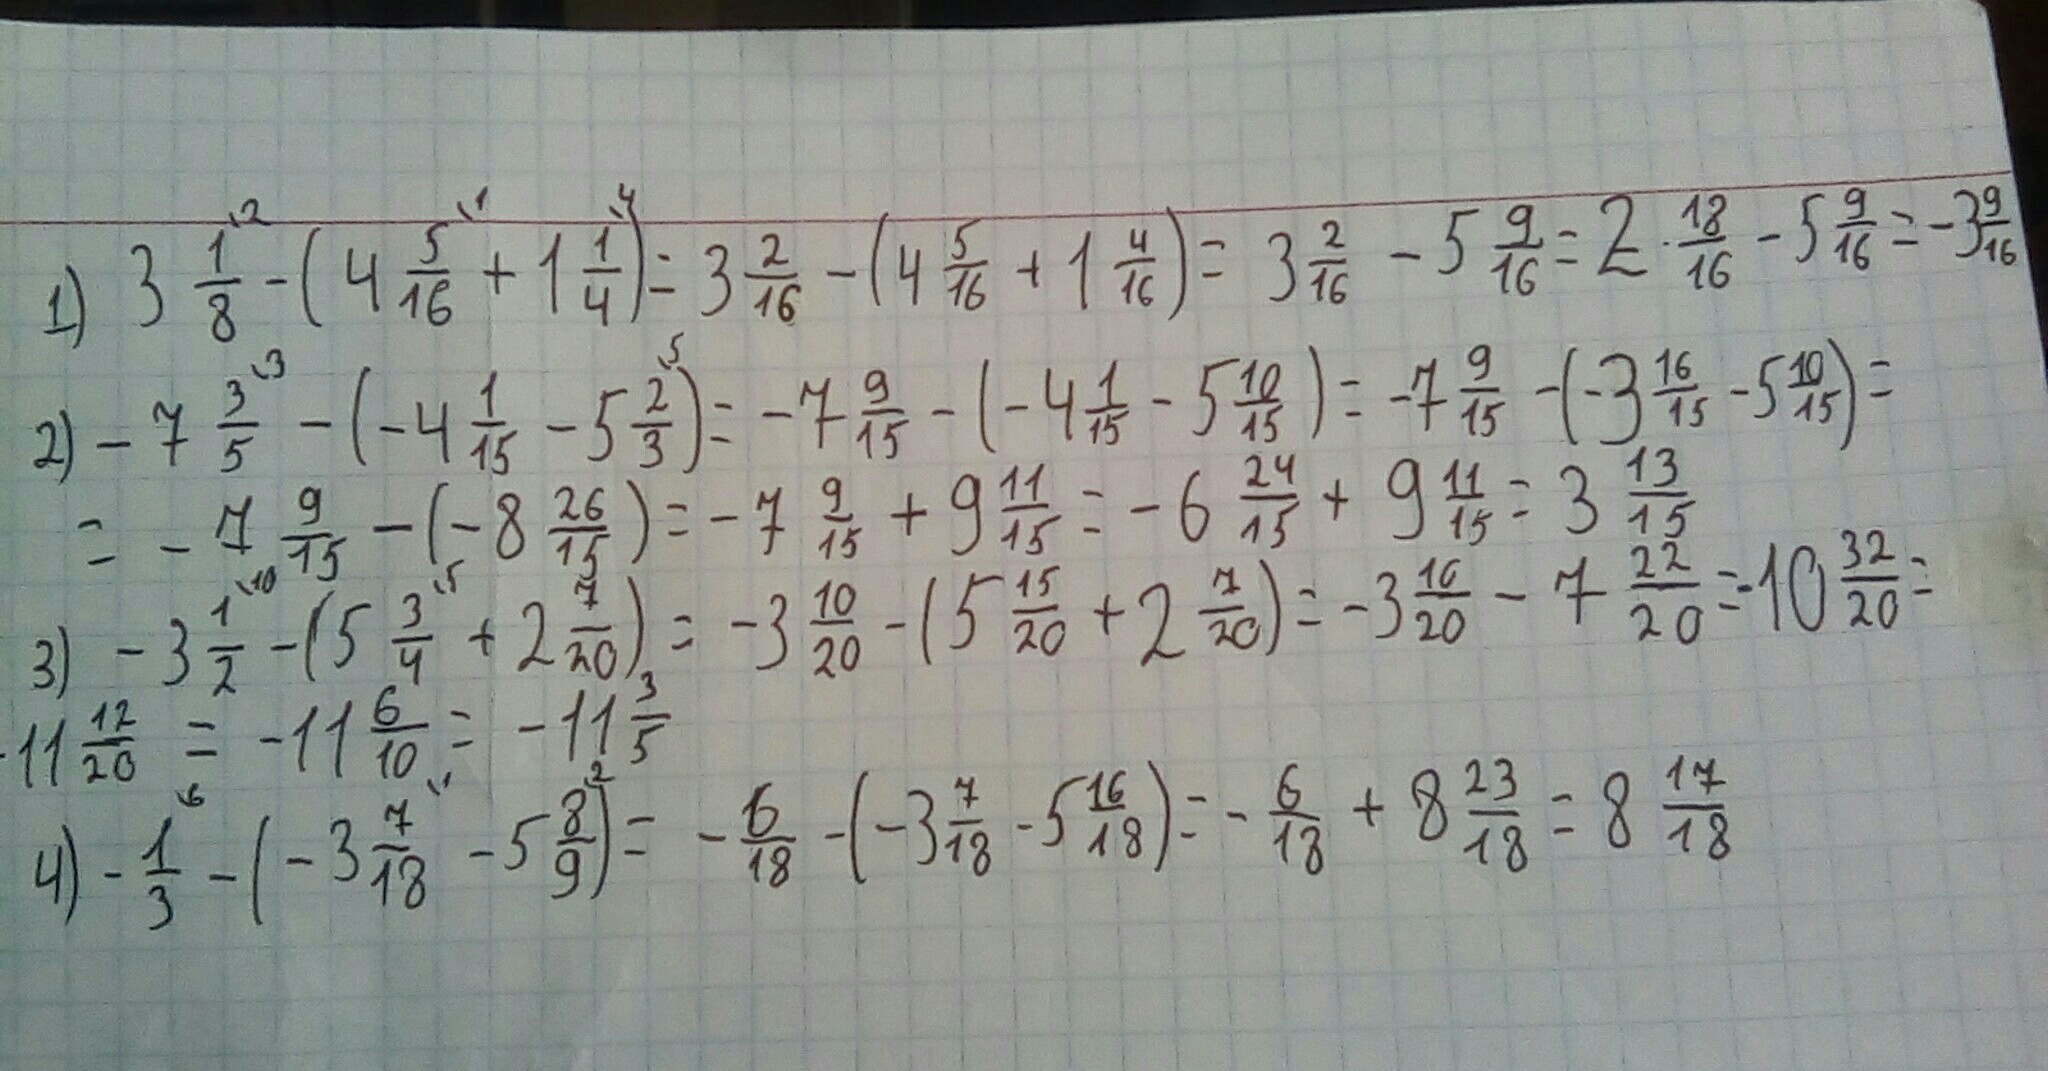 1) 3 1/8\2 - (4 5/16\1 + 1 1/4\4) = 3 2/16 - (4 5/16 + 1 4/16) = 3 2/16 - 5 9/16 = 2 · 18/16 - 5 9/16 = -3 9/16
2) -7 3/5\3 - (-4 1/15 - 5 2/3\5) = -7 9/15 - (-4 1/15 - 5 10/15) = -7 9/15 - (-3 16/15 - 5 10/15) =
= -7 9/15 - (-8 26/15) = -7 9/15 + 9 11/15 = -6 24/15 + 9 11/15 = 3 13/15
3) -3 1/2\10 - (5 3/4\5 + 2 7/20) = -3 10/20 - (5 15/20 + 2 7/20) = -3 10/20 - 7 22/20 = -10 32/20 =
-11 12/20 = -11 6/10 = -11 3/5
4) -1/3\6 - (-3 7/18\1 - 5 8/9\2) = -6/18 - (-3 7/18 - 5 16/18) = -6/18 + 8 23/18 = 8 17/18